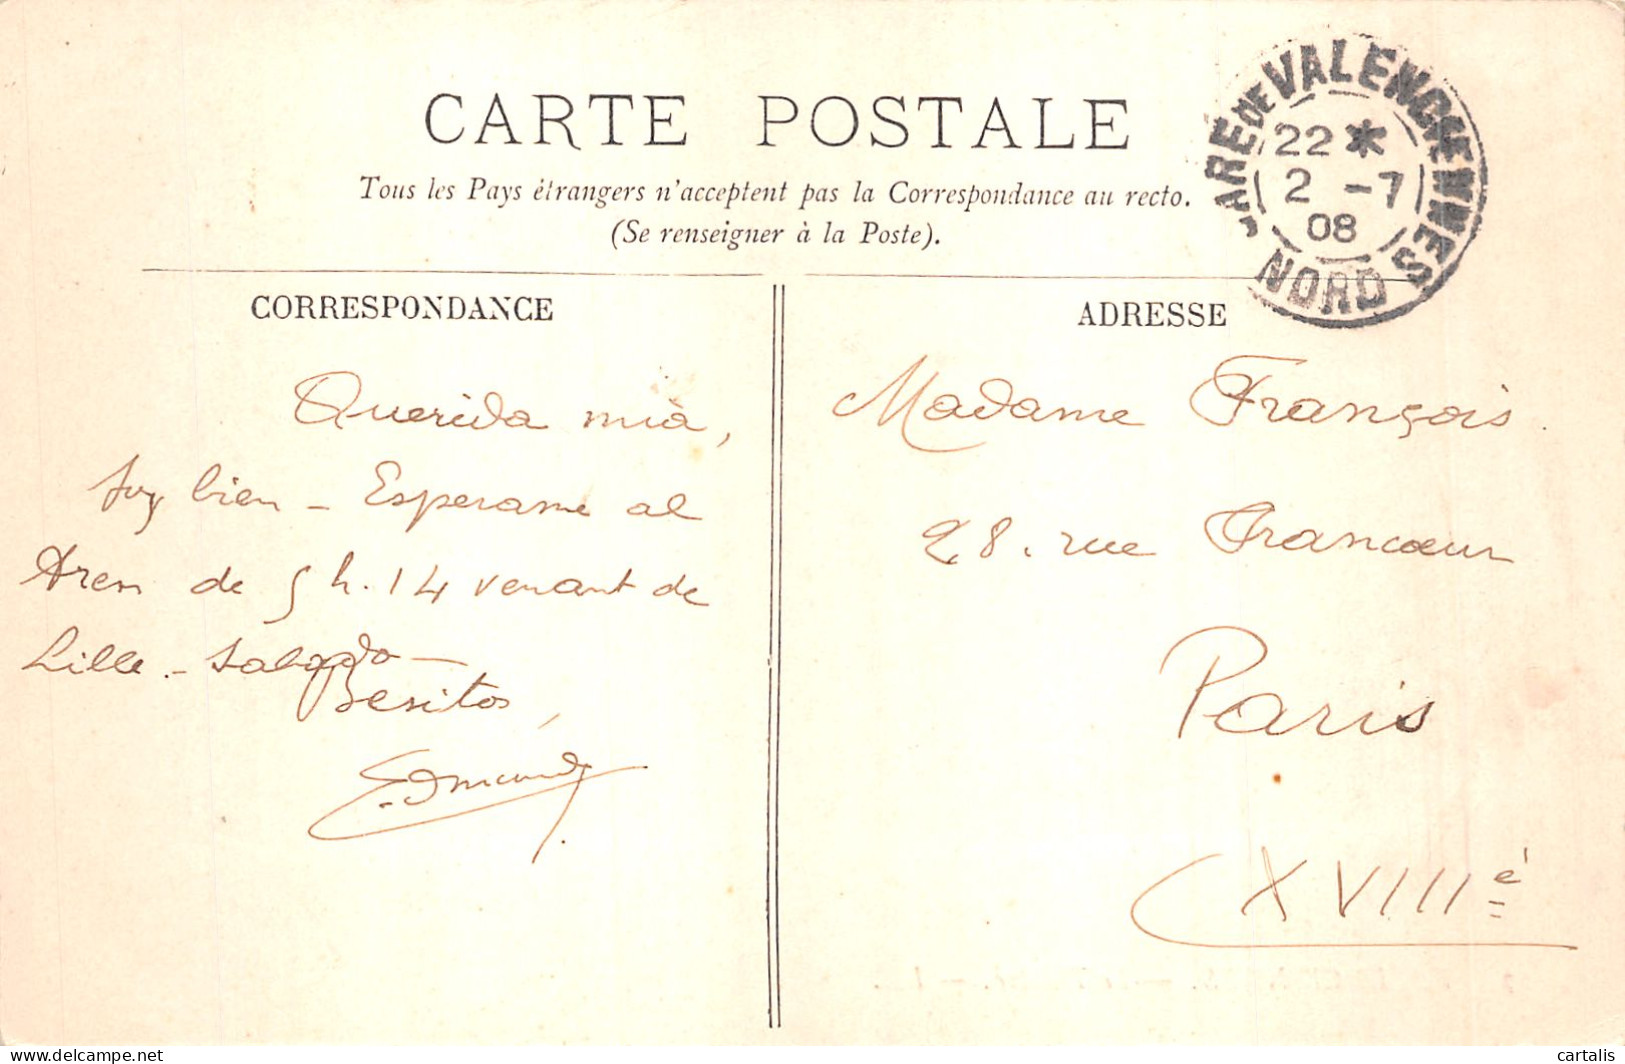 CARTE POSTALE
Tous les Pays étrangers n'acceptent pas la Correspondance au recto.
(Se renseigner à la Poste).
GARE DE VALENCIENNES
22 *
2 -7
08
NORD
CORRESPONDANCE
Querida mia,
Soy bien - Esperame al
tren de 5 h. 14 venant de
Lille. - Salgado -
Besitos,
Edmund
ADRESSE
Madame François
28. rue Francœur
Paris
XVIIIè
delcampe.net
cartalis